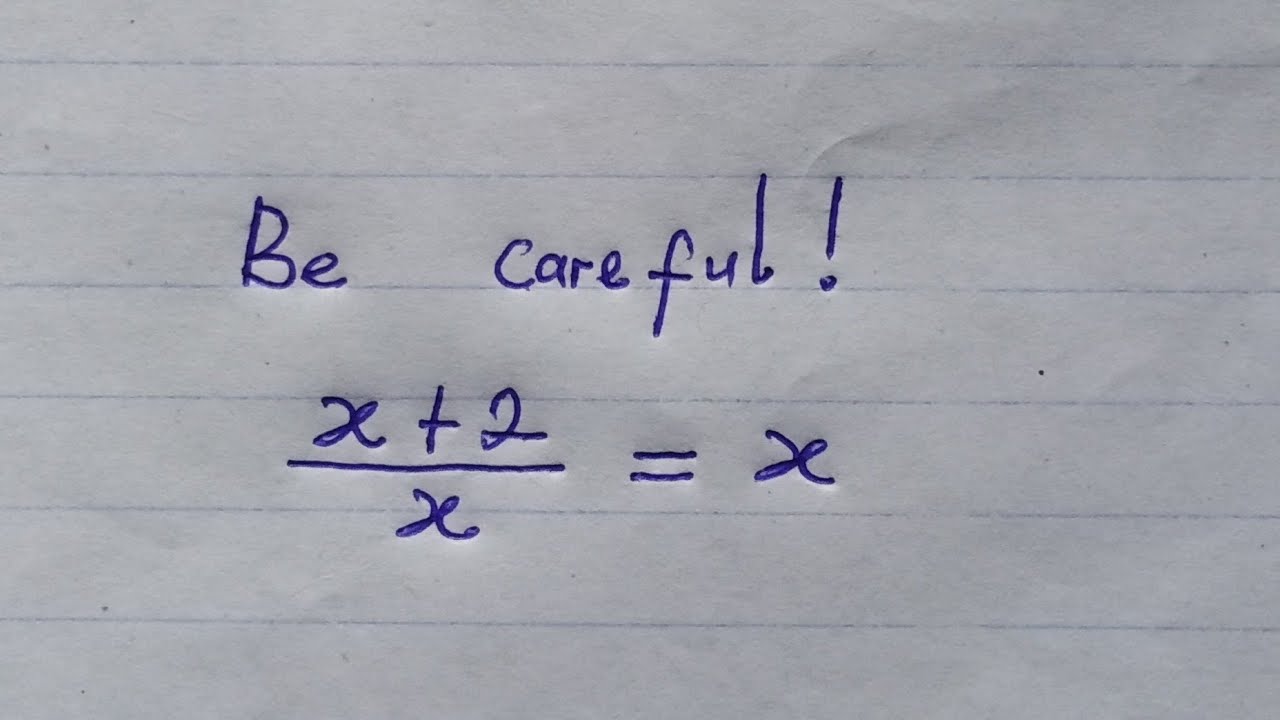 Be careful!
x + 2
x
= x